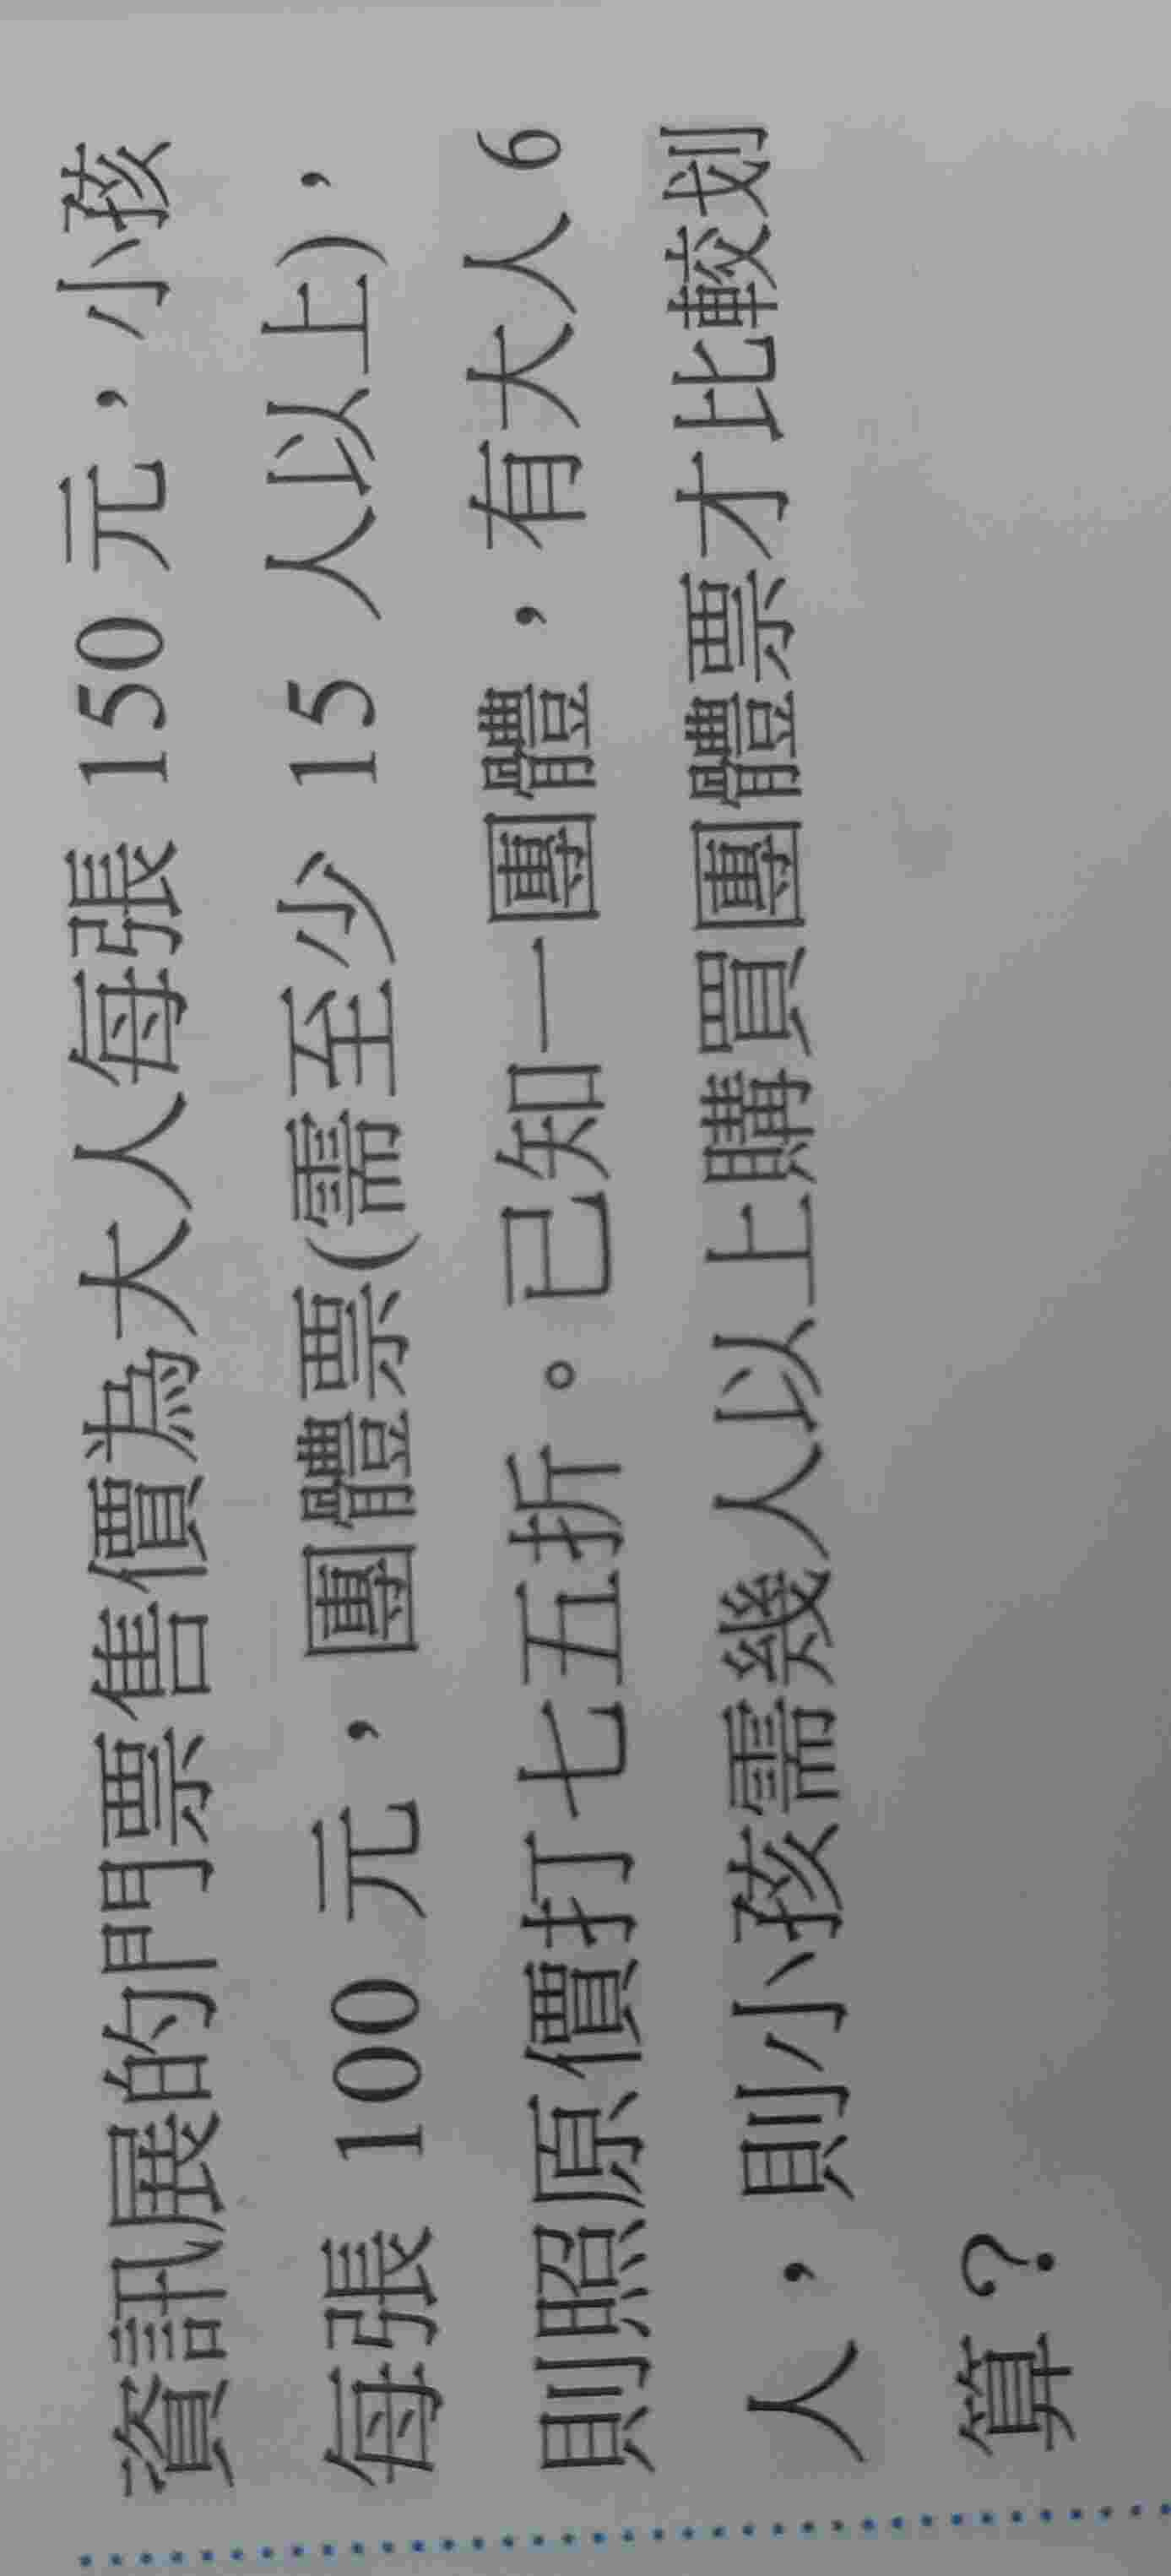 資訊展的門票售價為大人每張 150 元，小孩
每張 100 元，團體票(需至少 15 人以上)，
則照原價打七五折。已知一團體，有大人 6
人，則小孩需幾人以上購買團體票才比較划
算？